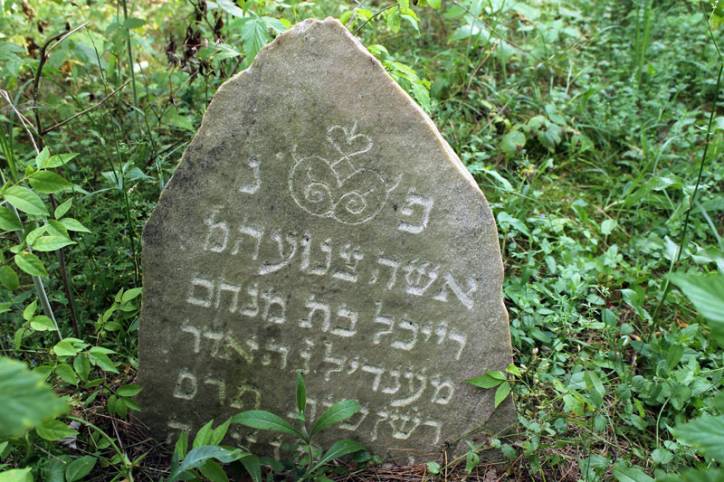 פ נ
אשה צנועה מ
רייכל בת מנחם
מענדיל ז ה אדר
ראשון שנת תרס